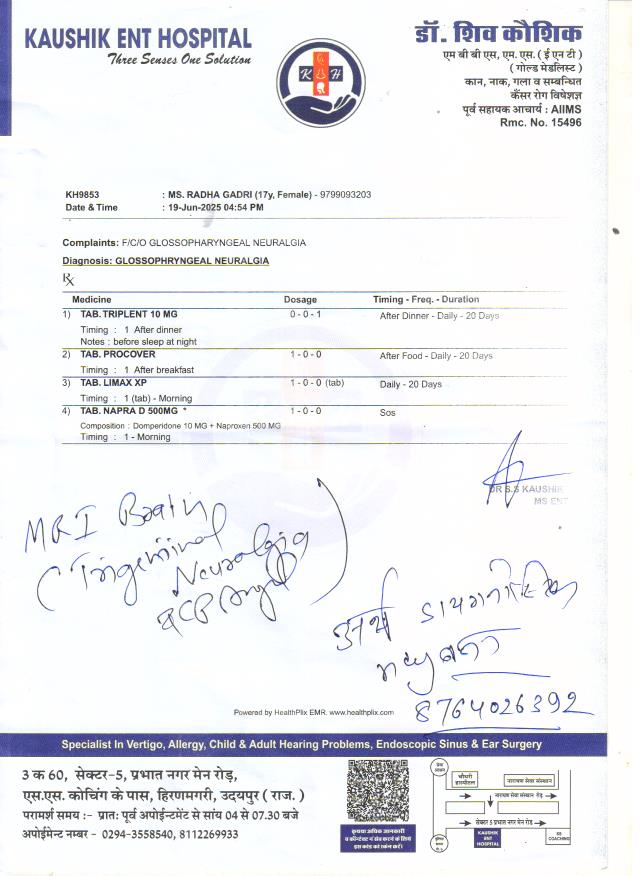 KAUSHIK ENT HOSPITAL
Three Senses One Solution
K H
डॉ. शिव कौशिक
एम बी बी एस, एम. एस. ( ई एन टी )
( गोल्ड मेडलिस्ट )
कान, नाक, गला व सम्बन्धित
कैंसर रोग विषेशज्ञ
पूर्व सहायक आचार्य : AIIMS
Rmc. No. 15496
KH9853 : MS. RADHA GADRI (17y, Female) - 9799093203
Date & Time : 19-Jun-2025 04:54 PM
Complaints: F/C/O GLOSSOPHARYNGEAL NEURALGIA
Diagnosis: GLOSSOPHRYNGEAL NEURALGIA
℞
Medicine Dosage Timing - Freq. - Duration
1) TAB. TRIPLENT 10 MG 0 - 0 - 1 After Dinner - Daily - 20 Days
Timing : 1 After dinner
Notes : before sleep at night
2) TAB. PROCOVER 1 - 0 - 0 After Food - Daily - 20 Days
Timing : 1 After breakfast
3) TAB. LIMAX XP 1 - 0 - 0 (tab) Daily - 20 Days
Timing : 1 (tab) - Morning
4) TAB. NAPRA D 500MG * 1 - 0 - 0 Sos
Composition : Domperidone 10 MG + Naproxen 500 MG
Timing : 1 - Morning
DR S.S KAUSHIK
MS ENT
MRI Brain
( Trigeminal
Neuralgia )
अर्थ डायग्नोस्टिक
8764026392
Powered by HealthPlix EMR. www.healthplix.com
Specialist In Vertigo, Allergy, Child & Adult Hearing Problems, Endoscopic Sinus & Ear Surgery
3 क 60, सेक्टर-5, प्रभात नगर मेन रोड़,
एस.एस. कोचिंग के पास, हिरणमगरी, उदयपुर ( राज. )
परामर्श समय :- प्रातः पूर्व अपोईन्टमेंट से सांय 04 से 07.30 बजे
अपोईमेन्ट नम्बर - 0294-3558540, 8112269933
कृपया अधिक जानकारी
व कॉन्टेक्ट नं सेव करने के लिए
इस कोड को स्कैन करें।
चौधरी
हास्पीटल
नारायण सेवा संस्थान
नारायण सेवा संस्थान रोड़
सेक्टर 5 प्रभात नगर मेन रोड़
KAUSHIK
ENT
HOSPITAL
SS
COACHING